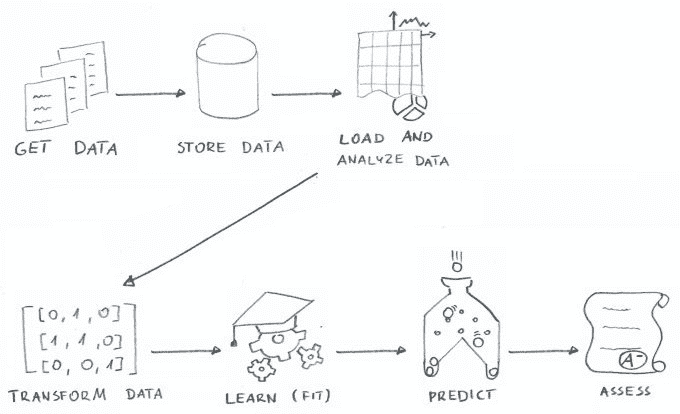 GET DATA
STORE DATA
LOAD AND
ANALYZE DATA
[0, 1, 0]
[1, 1, 0]
[0, 0, 1]
TRANSFORM DATA
LEARN (FIT)
!!!
PREDICT
A-
ASSESS